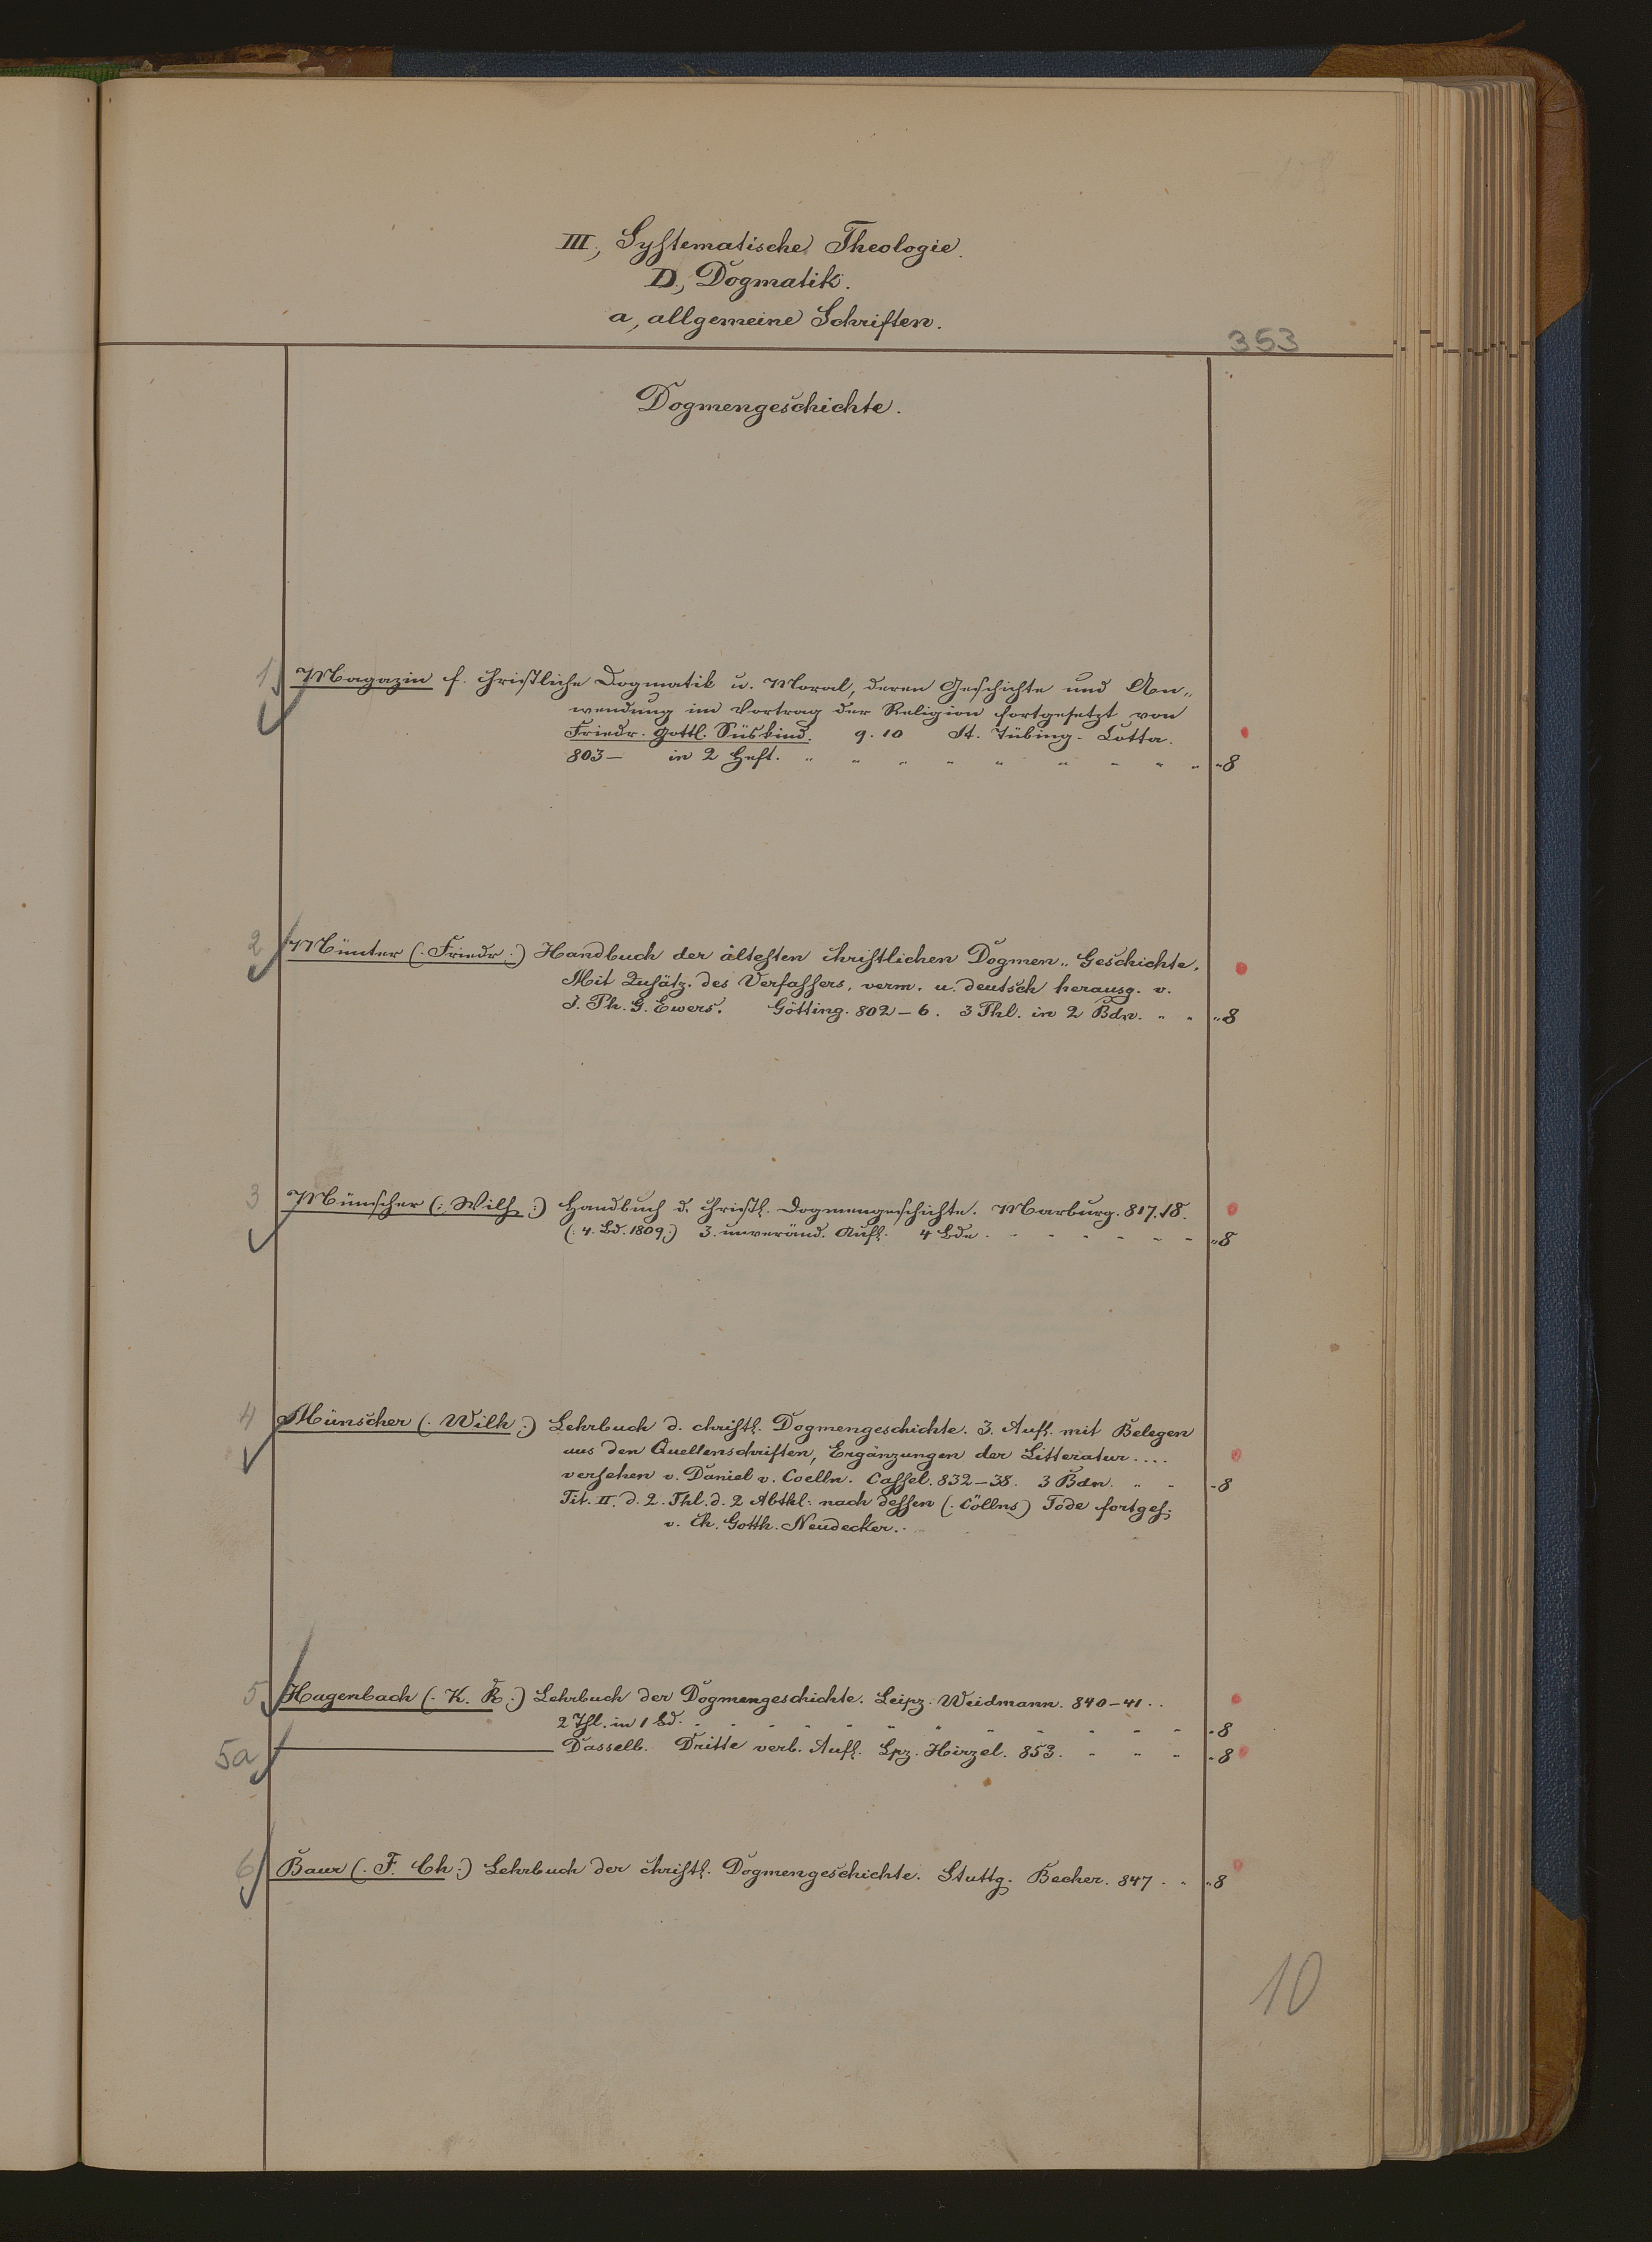 - 108 -
III., Systematische Theologie.
D., Dogmatik.
a, allgemeine Schriften.
353
Dogmengeschichte.
1 Magazin f. christliche Dogmatik u. Moral, deren Geschichte und An„
wendung im Vortrag der Religion fortgesetzt von
Friedr. Gottl. Süskind. 9. 10 St. Tübing. Cotta.
803 — in 2 Heft. „ „ „ „ „ „ „ „ „ „ 8
2 Münter (: Friedr :) Handbuch der ältesten christlichen Dogmen„ Geschichte.
Mit Zusätz. des Verfassers, verm. u. deutsch herausg. v.
J. Ph. G. Ewers. Götting. 802 – 6. 3 Thl. in 2 Bdn. „ „ „ 8
3 Münscher (: Wilh :) Handbuch d. christl. Dogmengeschichte. Marburg. 817. 18.
(: 4. Bd. 1809 :) 3. unveränd. Aufl. 4 Bde. - - - - - - „ 8
4 Münscher (: Wilh :) Lehrbuch d. christl. Dogmengeschichte. 3. Aufl. mit Belegen
aus den Quellenschriften, Ergänzungen der Litteratur . . . .
versehen v. Daniel v. Coelln. Cassel. 832 – 38. 3 Bdn. „ - - 8
Tit. II. d. 2. Thl. d. 2 Abthl. nach dessen (: Cöllns) Tode fortges.
v. Ch. Gotth. Neudecker.
5 Hagenbach (: K. R :) Lehrbuch der Dogmengeschichte. Leipz. Weidmann. 840 – 41 . .
2 Thl. in 1 Bd. - - - - - „ „ „ - - - - - 8
5a ——— Dasselb. Dritte verb. Aufl. Lpz. Hirzel. 853. - „ - - 8
6 Baur (: F. Ch :) Lehrbuch der christl. Dogmengeschichte. Stuttg. Becher. 847 . „ „ 8
10